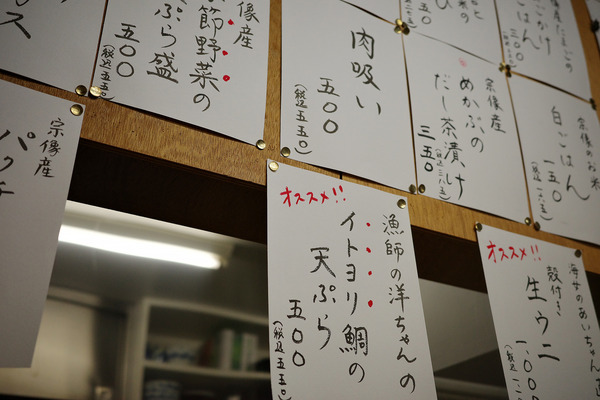 ス
宗像産
節野菜の
ぷら盛
五〇〇
肉吸い
五〇〇
(税込五五〇)
宗像産
めかぶの
だし茶漬け
三五〇
(税込三八五)
ごはん
三〇〇
宗像のお米
白ごはん
一五〇
宗像産
オススメ!!
漁師の洋ちゃんの
イトヨリ鯛の
天ぷら
五〇〇
(税込五五〇)
オススメ!!
海女のあいちゃん
殻付き
生ウニ
一、〇〇〇